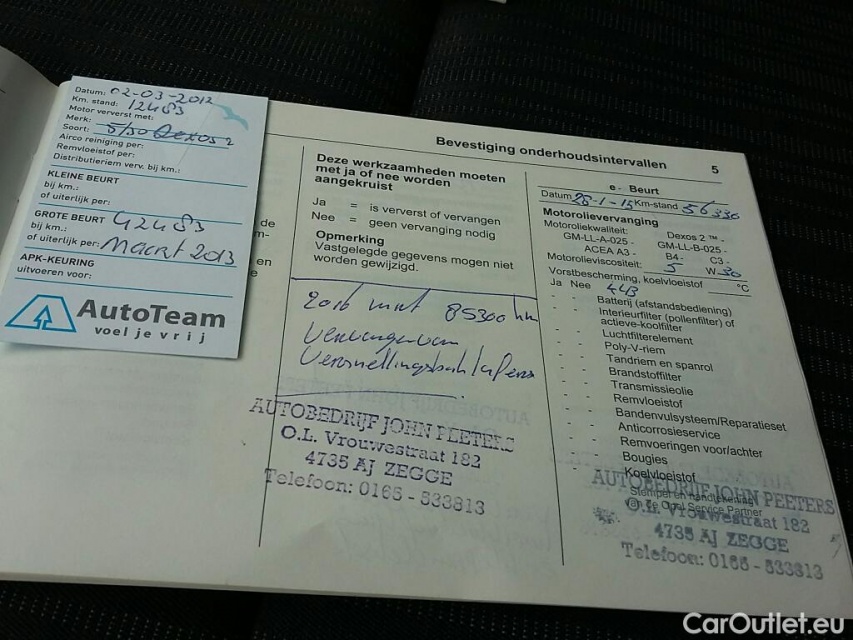 Datum: 02-03-2012
Km. stand: 12483
Motor ververst met:
Merk:
Soort: 5/30 Dexos 2
Airco reiniging per:
Remvloeistof per:
Distributieriem verv. bij km.:
KLEINE BEURT
bij km.:
of uiterlijk per:
GROTE BEURT
bij km.: 42483
of uiterlijk per: Maart 2013
APK-KEURING
uitvoeren voor:
AutoTeam
voel je vrij
de
m-
en
e
Bevestiging onderhoudsintervallen 5
Deze werkzaamheden moeten
met ja of nee worden
aangekruist
Ja = is ververst of vervangen
Nee = geen vervanging nodig
Opmerking
Vastgelegde gegevens mogen niet
worden gewijzigd.
2016 met 85300 km
Vervangen van
AUTOBEDRIJF JOHN PEETERS
O.L. Vrouwestraat 182
4735 AJ ZEGGE
Telefoon: 0165 - 533813
e - Beurt
Datum 28-1-15 Km-stand 56330
Motorolievervanging
Motoroliekwaliteit: Dexos 2 ™ -
GM-LL-A-025 - GM-LL-B-025-
ACEA A3 - B4- C3 -
Motorolieviscositeit: 5 W-30
Vorstbescherming, koelvloeistof °C
Ja Nee
- - Batterij (afstandsbediening)
- - Interieurfilter (pollenfilter) of
actieve-koolfilter
- - Luchtfilterelement
- - Poly-V-riem
- - Tandriem en spanrol
- - Brandstoffilter
- - Transmissieolie
- - Remvloeistof
- - Bandenvulsysteem/Reparatieset
- - Anticorrosieservice
- - Remvoeringen voor/achter
- - Bougies
- - Koelvloeistof
AUTOBEDRIJF JOHN PEETERS
Stempel en handtekening
van de Opel Service Partner
O.L. Vrouwestraat 182
4735 AJ ZEGGE
Telefoon: 0165 - 533813
CarOutlet.eu